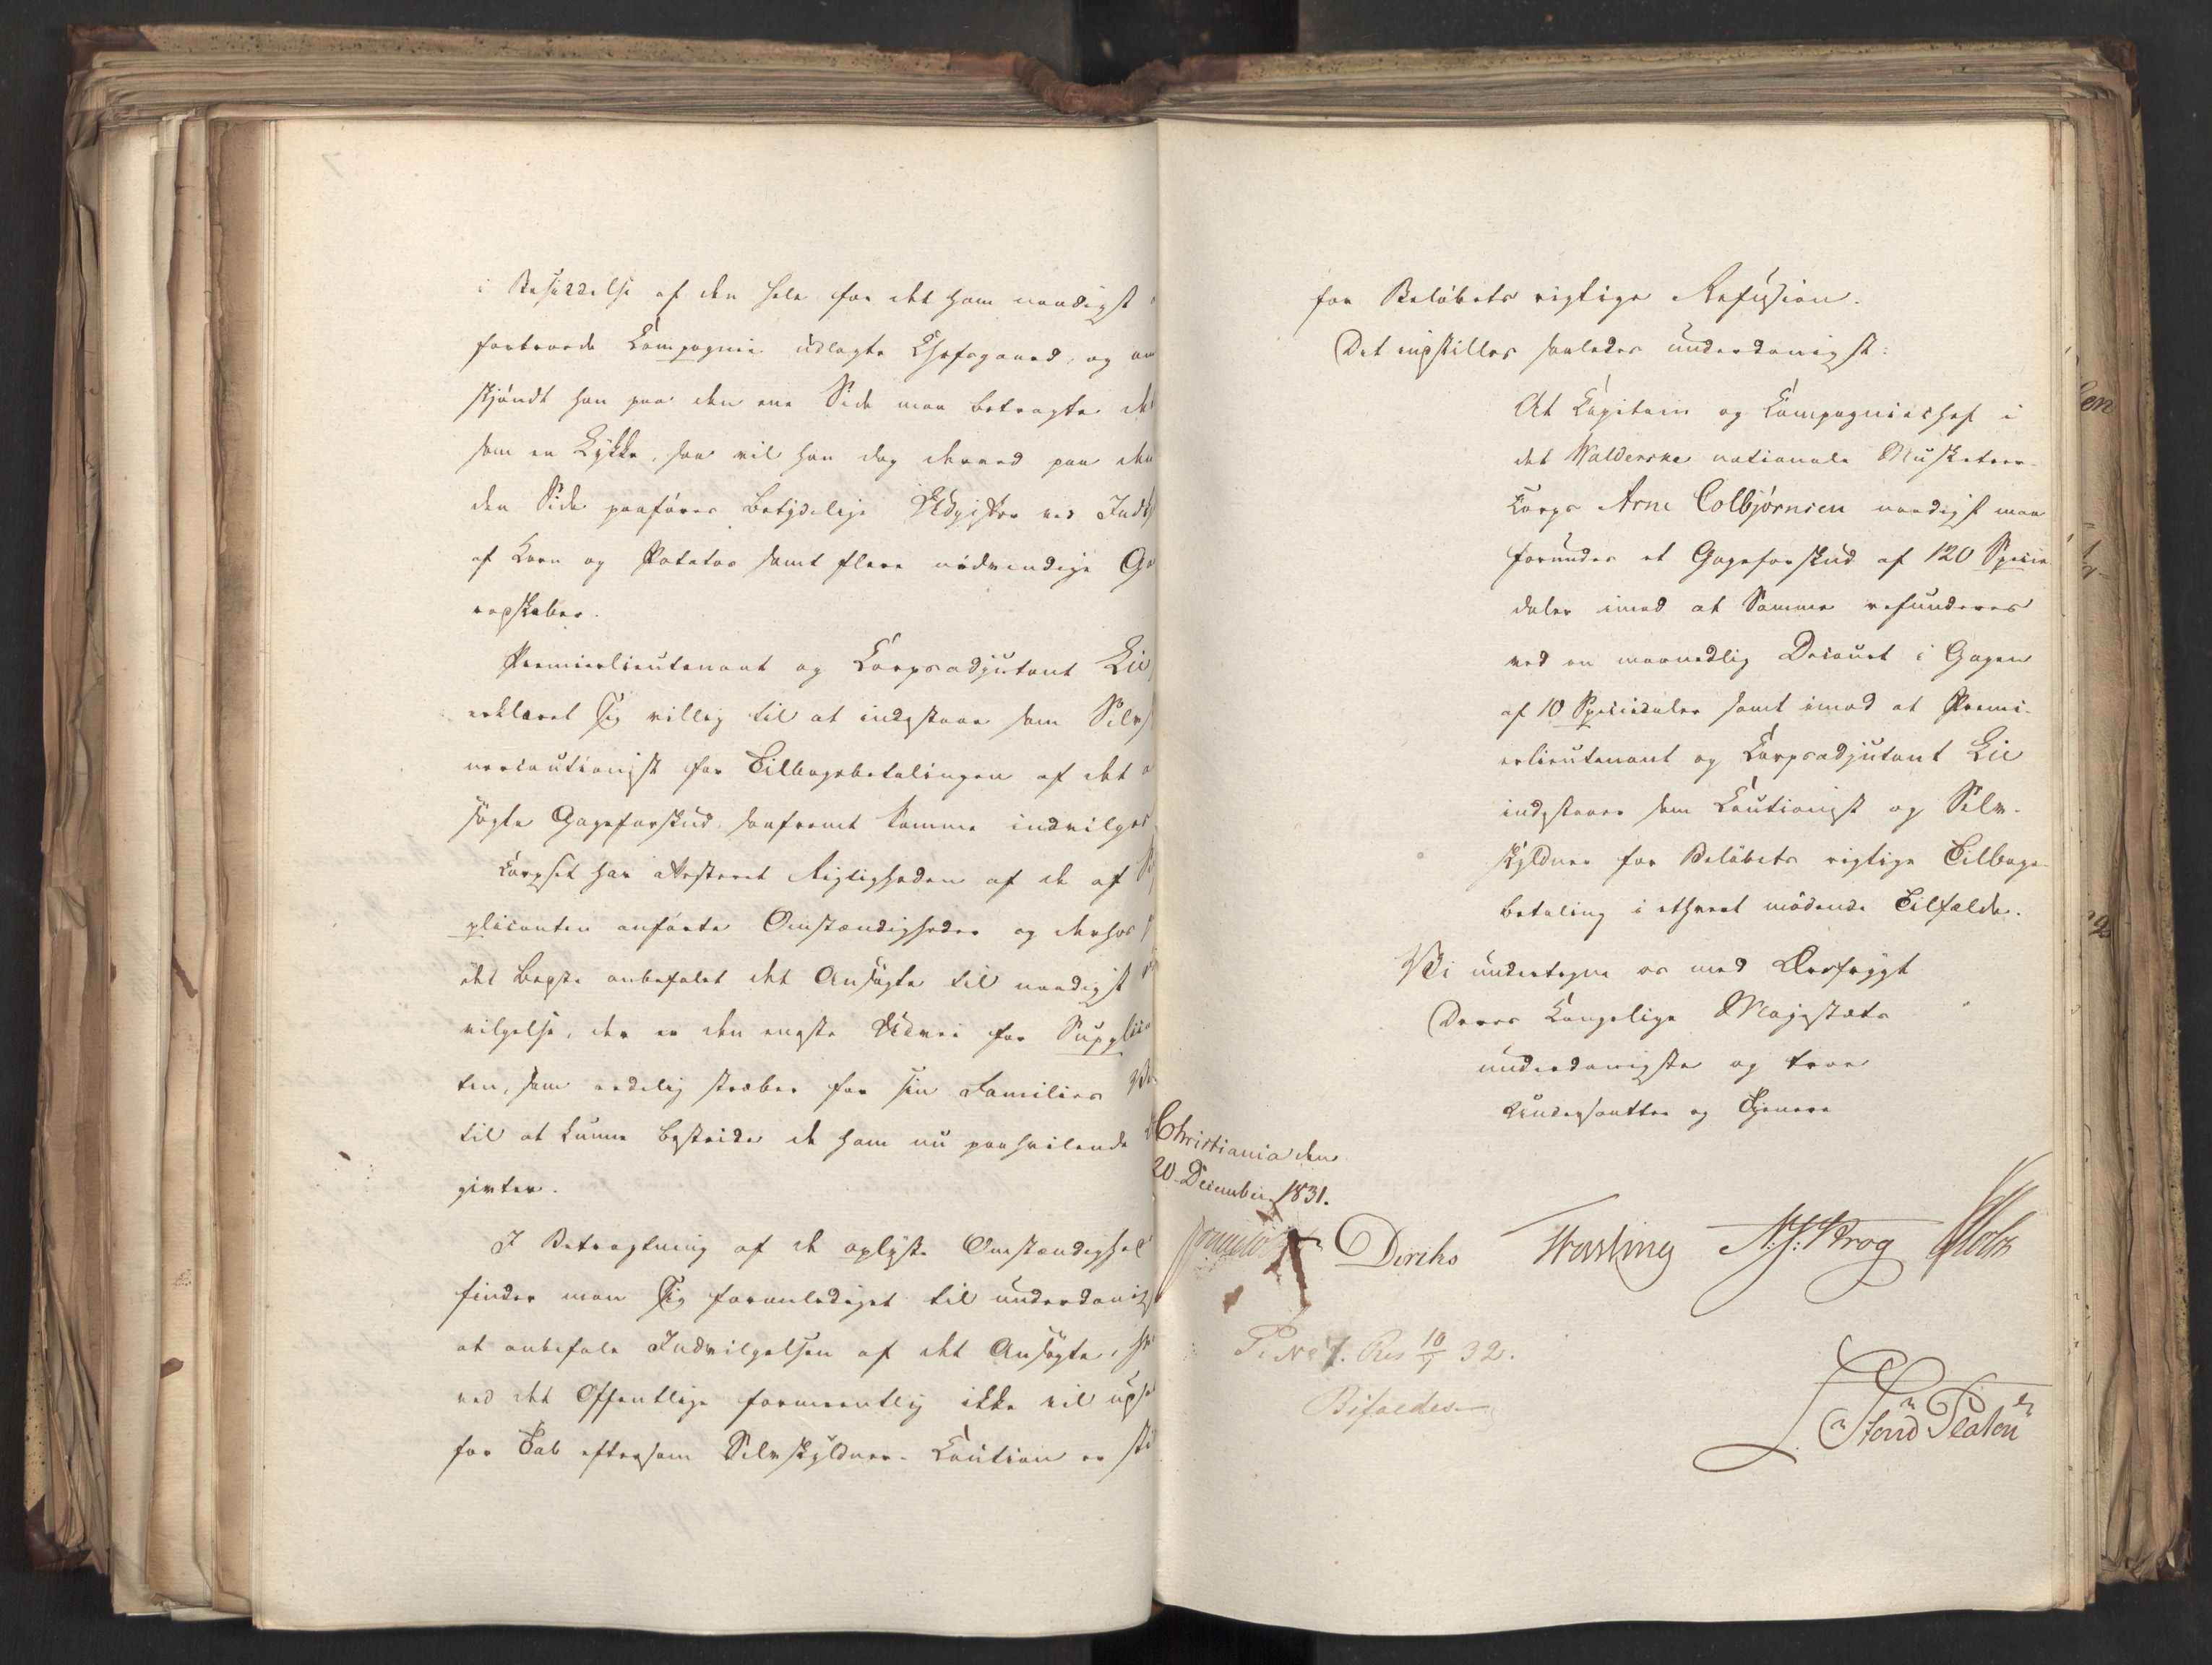 i Besiddelse af den hele for det ham naadigst
forteerede Compagnie udlagte Chefsgaard, og om
skjöndt han paa den ene Side maa betragte det
som en Lykke, saa vil han dog derved paa den
den Side paaföres betydelige Udgivter ved Indkj
af Korn og Potatos samt flere nödvendige Ge
reedskaber.
Premierlieutenant og Corpsadjutant Lie
erklæret sig villig til at indestaae som Selvsk
nercautionist for Tilbagebetalingen af det a
sögte Gageforskud, saafremt samme indvilges
Corpset har attesteret Rigtigheden af de af
plicanten anförte Omstændigheder og derhos
det beste anbefalet det Ansögte til naadigst
vilgelse, der er den eneste Udvei for Supplica
ten, som redelig stræber for sin Families Ve
til at kunne bestride de ham nu paahvilende
givter.
I Betragtning af de oplyste Omstændighed
finder man sig foranlediget til underdanigst
at anbefale Indvilgelsen af det Ansögte, hv
ved det Offentlige formeentlig ikke vil udsæ
for Tab eftersom Selvskyldner-Caution er sti
for Belöbets rigtige Refusion.
Det indstilles saaledes underdanigst:
At Capitain og Compagniechef i
det Walderske nationale Musketeer-
Corps Arne Colbjörnsen naadigst maa
forundes et Gageforskud af 120 Specie
daler imod at Samme refunderes
ved en maanedlig Decourt i Gagen
af 10 Speciedaler samt imod at Premi-
erlieutenant og Corpsadjutant Lie
indestaaer som Cautionist og Selv-
skyldner for Belöbets rigtige Tilbage-
betaling i ethvert mödende Tilfælde.
Vi undertegne os med Ærefrygt
Deres Kongelige Majestæts
underdanigste og troe
Undersaatter og Tjenere
Christiania den
20 December 1831.
Diriks Vasling Krog Holst
P. No 7. Res 10/1 32.
Bifaldes